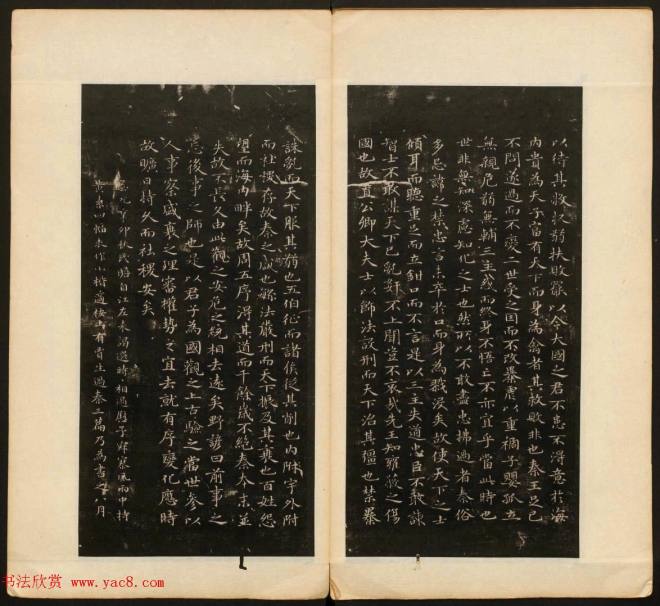 以待其敝收弱扶敗罷以令大國之君不患不得意於海
内貴為天子富有天下而身為禽者其救敗非也秦王足己
不問遂過而不變二世受之因而不改暴虐以重禍子嬰孤立
無親危弱無輔三主惑而終身不悟亡不亦宜乎當此時也
世非無知深慮知化之士也然所以不敢盡忠拂過者秦俗
多忌諱之禁忠言未卒於口而身為戮沒矣故使天下之士
傾耳而聽重足而立鉗口而不言是以三主失道忠臣不敢諫
智士不敢謀天下已亂奸不上聞豈不哀哉先王知雍蔽之傷
國也故置公卿大夫士以飾法設刑而天下治其彊也禁暴
誅亂而天下服其弱也五伯征而諸侯從其削也内附字外附
而社稷存故秦之盛也繁法嚴刑而天下振及其衰也百姓怨
望而海内畔矣故周五序得其道而千餘歲不絕秦本末並
失故不長久由此觀之安危之統相去遠矣野諺曰前事之不
忘後事之師也是以君子為國觀之上古驗之當世參以
人事察盛衰之理審權勢之宜去就有序變化應時
故曠日持久而社稷安矣
至元辛卯秋民瞻自江左來過時相過風雨中持
黃素四幅求作小楷適案上有賈生過秦三篇乃為書之八月
书法欣赏 www.yac8.com